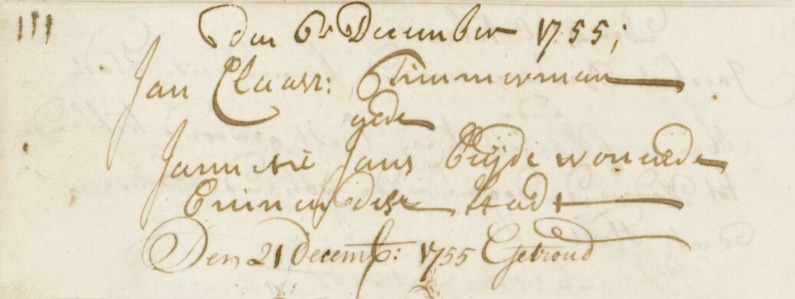 111
den 6 December 1755;
Jan Claass: Timmerman
en de
Jannetie Jans Beÿde wonende
binnen dese stadt
Den 21 Decemb: 1755 Getroud